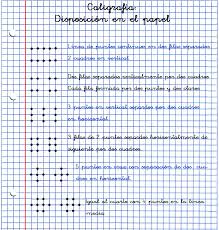 Caligrafía:
Disposición en el papel
Línea de puntos continuos en dos filas separadas
2 cuadros en vertical
Dos filas separadas verticalmente por dos cuadros
Cada fila formada por dos puntos y dos claros
3 puntos en vertical separados por dos cuadros
en horizontal
3 filas de 2 puntos separados horizontalmente de
siguiente por dos cuadros.
5 puntos en cruz con separación de dos cua-
dros en horizontal
Igual al cuarto con 4 puntos en la línea
media